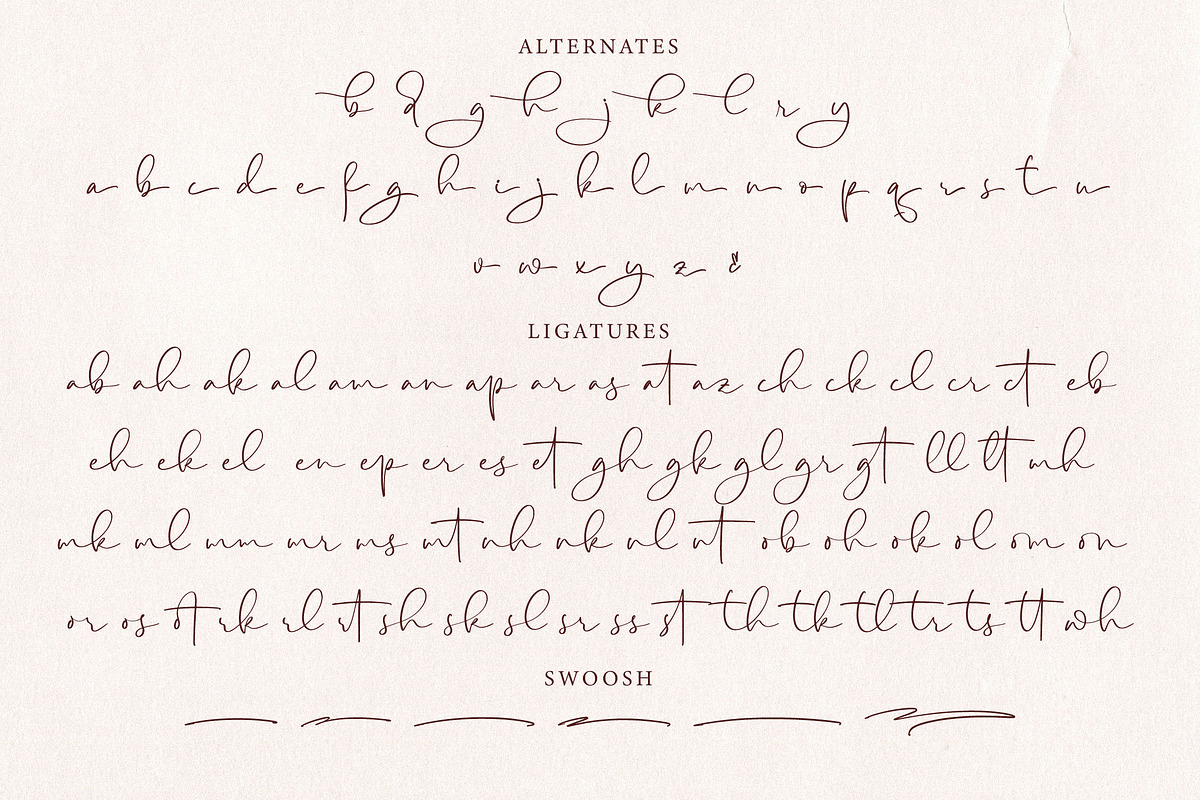 ALTERNATES
b d g h j k l r y
a b c d e f g h i j k l m n o p q r s t u
v w x y z &
LIGATURES
ab ah ak al am an ap ar as at az ch ck cl cr ct eb
eh ek el en ep er es et gh gk gl gr gt ll lt mh
mk ml mm mr ms mt nh nk nl nt ob oh ok ol om on
or os ot rk rl rt sh sk sl sr ss st th tk tl tr ts tt wh
SWOOSH